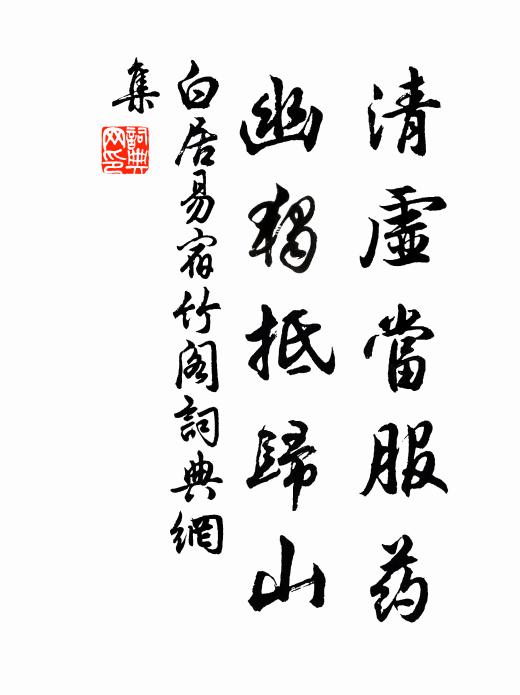 清虛當服药
幽獨抵歸山
白居易宿竹阁詞典網
集
詞典
网印